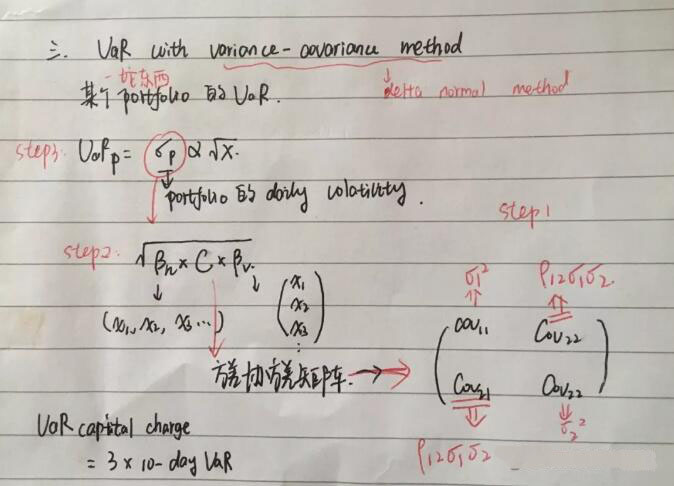 三. VaR with variance-covariance method
一坨东西
某个portfolio的VaR.
delta normal method
step3: VaRp = σp α √x.
portfolio的daily volatility.
step1
step2: √βh × C × βv.
(x1, x2, x3...)
(x1
x2
x3
⋮)
σ1² ρ12σ1σ2
cov11 Cov22
Cov21 Cov22
ρ12σ1σ2 σ2²
方差协方差矩阵.
VaR capital charge
= 3 × 10-day VaR